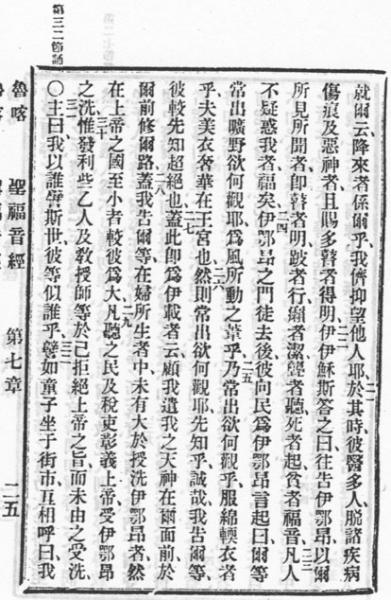 第三二節誦
就爾云、降來者係爾乎、我儕抑望他人耶、於其時、彼醫多人、脫諸疾病、
傷痕及惡神者、且賜多瞽者得明、伊伊穌斯答之曰、往告伊鄂昂、以爾
所見所聞者、即瞽者明、跛者行、癩者潔、聾者聽、死者起、貧者福音、凡人
不疑惑我者、福矣、伊鄂昂之門徒去後、彼向民爲伊鄂昂言起曰、爾等
常出曠野、欲何觀耶、爲風所動之葦乎、乃常出欲何觀乎、服綿輭衣者
乎、夫美衣奢華、在王宮也、然則常出欲何觀耶、先知乎、誠哉、我告爾等、
彼較先知超絕也、蓋此即爲伊載者云、顧我遣我之天神、在爾面前、於
爾前修爾路、蓋我告爾等、在婦所生者中、未有大於授洗伊鄂昂者、然
在上帝之國至小者、較彼爲大、凡聽之民及稅吏彰義上帝、受伊鄂昂
之洗、惟發利些乙人及敎授師等、於己拒絕上帝之旨、而未由之受洗、
○主曰、我以誰譬斯世、彼等似誰乎、譬如童子坐于街市、互相呼曰、我
魯喀 聖福音經 第七章 二五